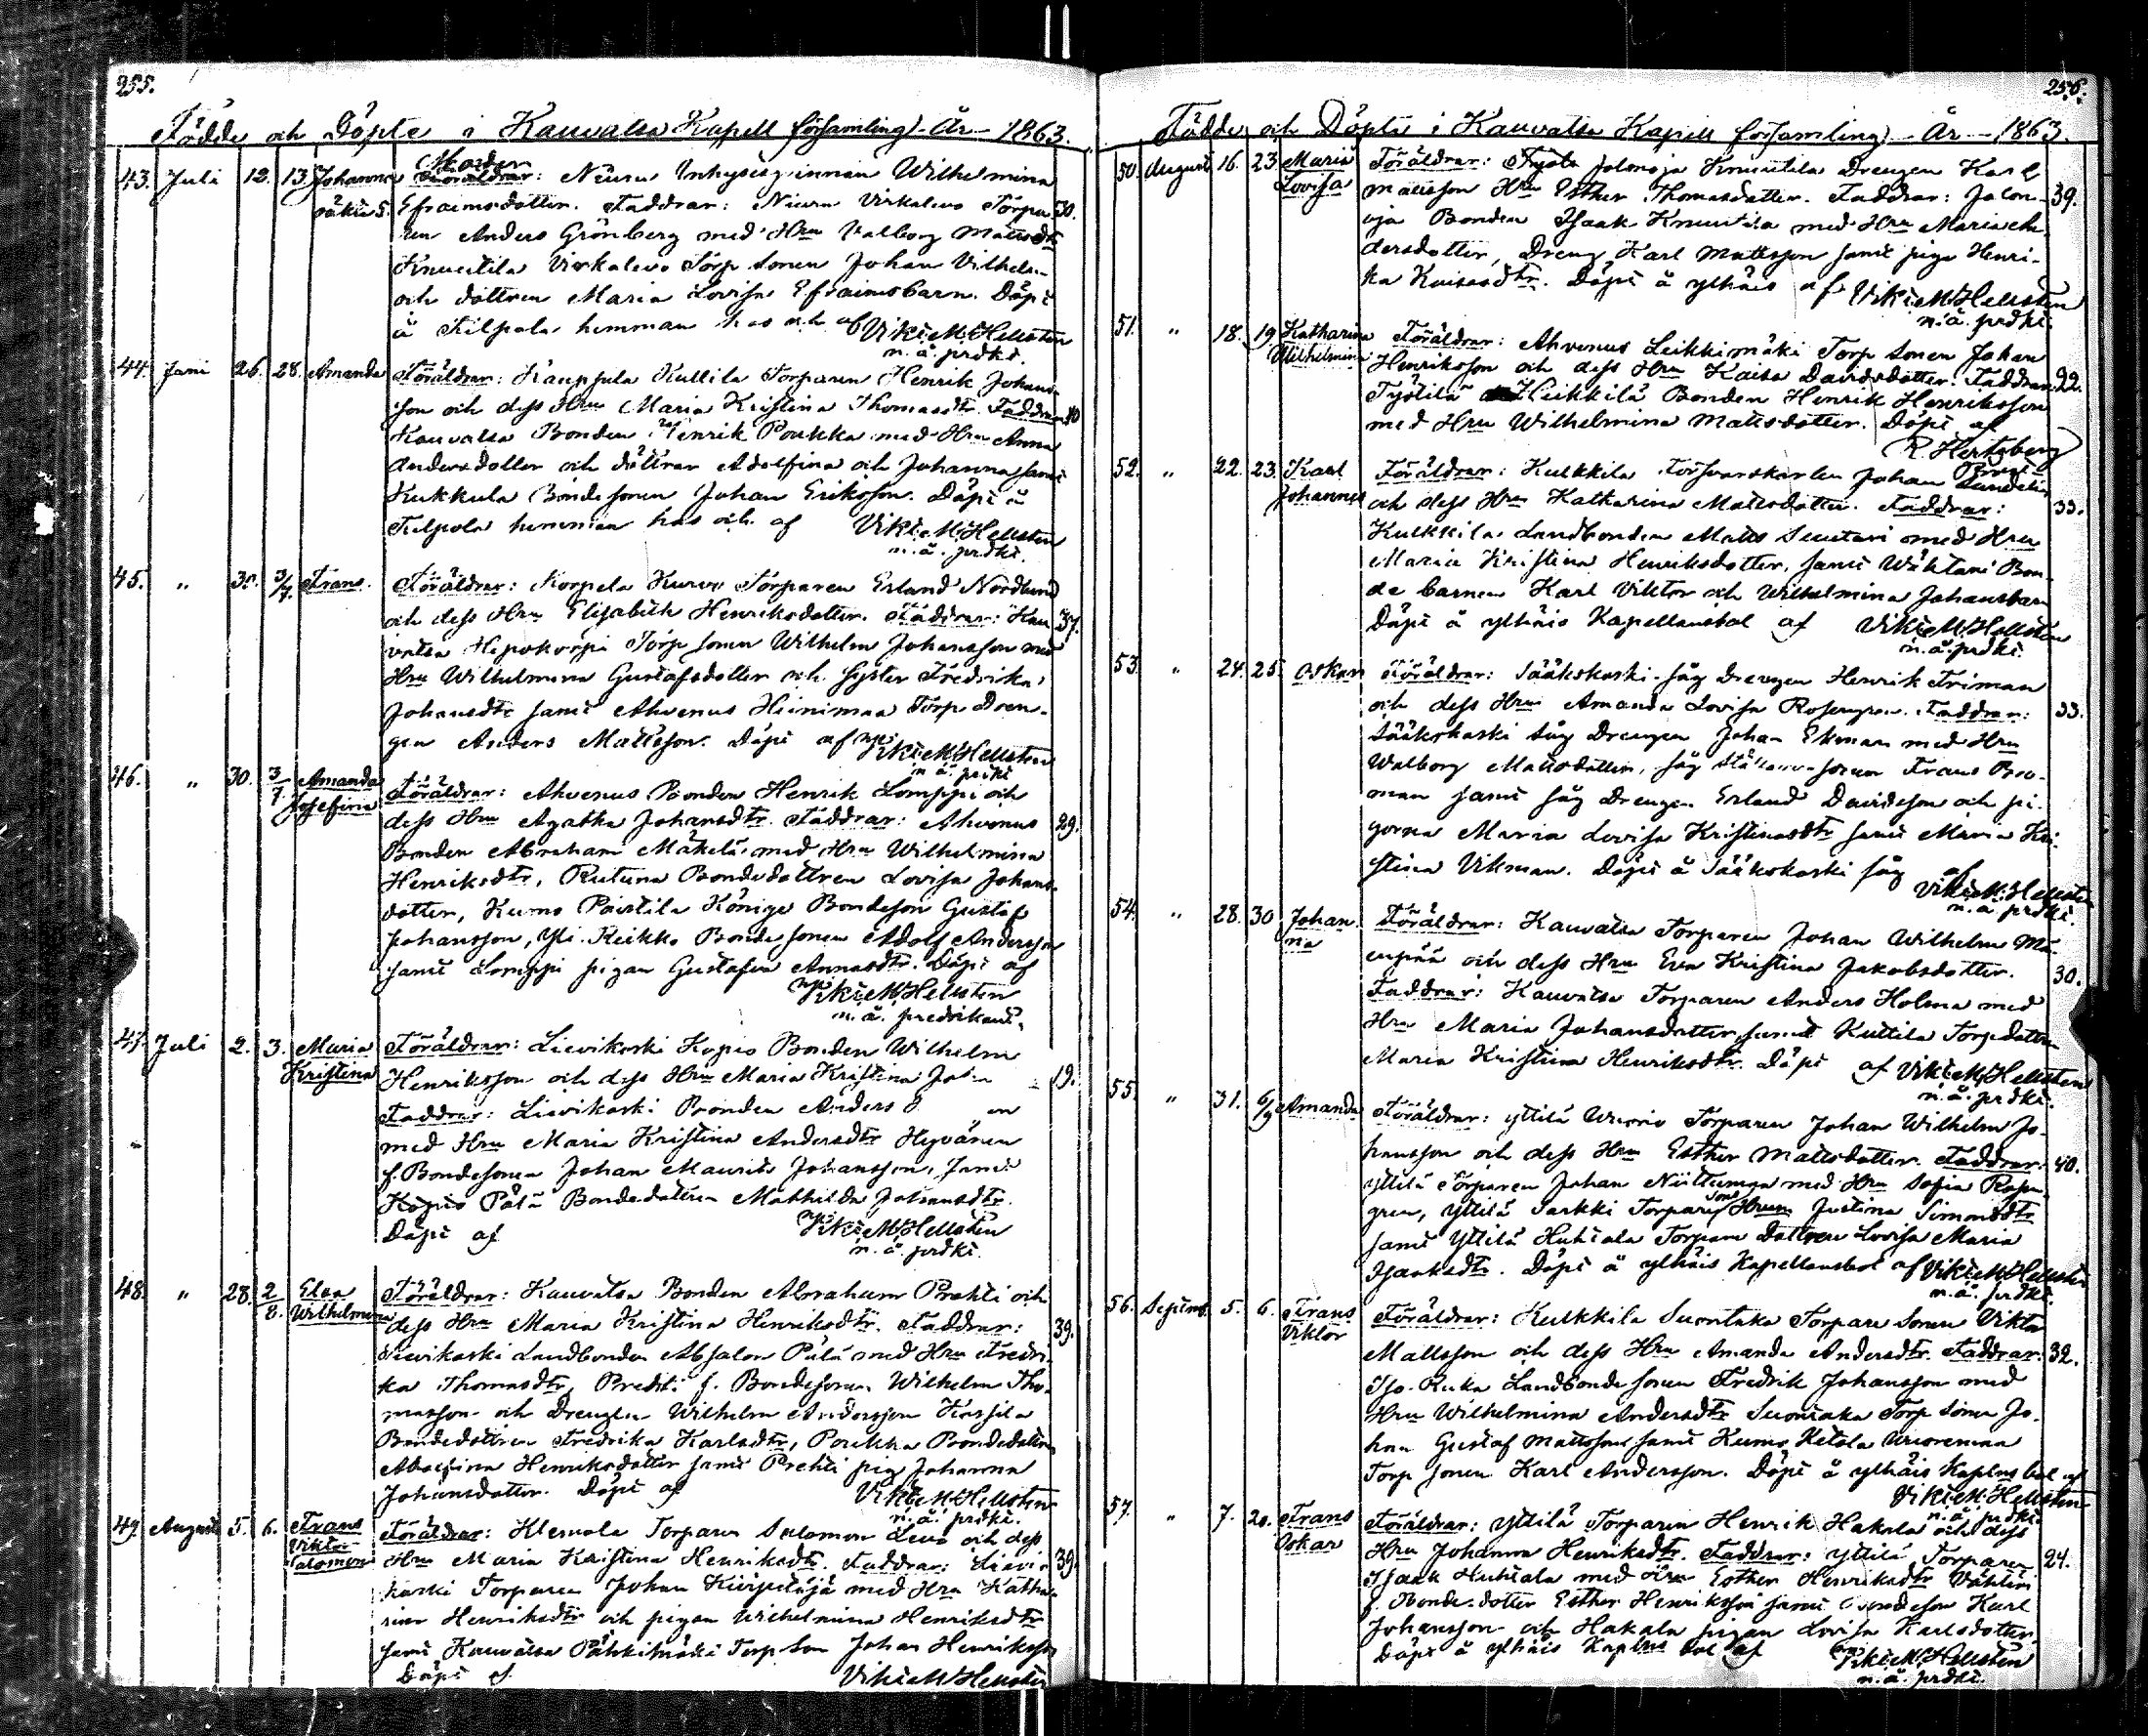 255.
Födde och Döpte i Kauvatsa Kapell församling. År 1863.
43. Juli 12. 13. Johanna Moder: Inhysesqvinnan Wilhelmina
oäkta Efraimsdotter. Faddrar: Virkalevo Torpa- 30.
ren Anders Grönberg med Hru Valborg Mattsdtr
Knuutila Virkalevo Torp sonen Johan Vilhelm
och dottren Maria Lovisa Efraimsbarn. Döpt
å Kilpola hemman hos och af Viki M. Hellsten
n. å. prdkt.
44. Juni 26. 28. Amanda Föräldrar: Kauppula Kullila Torparen Henrik Johans-
son och dess Hru Maria Kristina Thomasdtr. Faddrar: 40
Kauvatsa Bonden Henrik Poukka med Hru Anna
Andersdotter och döttrar Adolfina och Johanna samt
Kukkula Bondesonen Johan Eriksson. Döpt å
Kilpola hemman hos och af Viki M. Hellsten
n. å. prdkt.
45. " 30. 3/7. Frans. Föräldrar: Korpela Torparen Erland Nordlund
och dess Hru Elisabeth Henriksdotter. Faddrar: Kau- 37.
vatsa Hepokorpi Torp sonen Wilhelm Johansson med
Hru Wilhelmina Gustafsdotter och Syster Fredrika
Johansdtr samt Ahvenus Hiinimaa Torp Dren-
gen Anders Mattsson. Döpt af Viki M. Hellsten
n. å. prdkt
46. " 30. 3/7. Amanda Josefina Föräldrar: Ahvenus Bonden Henrik Lomppi och
dess Hru Agatha Johansdtr. Faddrar: Ahvenus 29.
Bonden Abraham Mäkelä med Hru Wilhelmina
Henriksdtr, Bondedottren Lovisa Johans-
dotter, Kumo Paistila Bondeson Gustaf
Johansson, Yli-Keikko Bonde sonen Adolf Andersson
samt Lomppi pigan Gustafva Annasdtr. Döpt af
Viki M. Hellsten
n. å. predikant.
47. Juli 2. 3. Maria Kristina Föräldrar: Lievikoski Kopio Bonden Wilhelm
Henriksson och dess Hru Maria Kristina 19.
Faddrar: Lievikoski Bonden Anders
med Hru Maria Kristina Andersdtr Hyvänen
f. Bondesonen Johan Maurits Johansson, samt
Kopio Pälä Bondedottren Mathilda Johansdtr.
Döpt af Viki M. Hellsten
n. å. prdkt.
48. " 28. 2/8. Elsa Wilhelmina Föräldrar: Kauvatsa Bonden Abraham Prehti och
dess Hru Maria Kristina Henriksdtr. Faddrar: 39.
Lievikoski Landbonden Absalon Pälä med Hru Fredri-
ka Thomasdtr, Prehti f. Bondesonen Wilhelm Tho-
masson och Drengen Wilhelm Andersson
Bondedottren Fredrika Karlsdtr, Poukka Bondedottren
Adolfina Henriksdotter samt Prehti piga Johanna
Johansdotter. Döpt af Viki M. Hellsten
n. å. prdkt.
49. Augusti 5. 6. Frans Viktor Salomon Föräldrar: Klemola Torparen Salomon Levo och dess
Hru Maria Kristina Henriksdtr. Faddrar: Lievi- 39.
koski Torparen Johan med Hru Katha-
rina Henriksdtr och pigan Wilhelmina Henriksdtr
samt Kauvatsa Torp son Johan Henriksson
Döpt af Viki M. Hellsten
256.
Födde och Döpte i Kauvatsa Kapell församling. År 1863.
50. Augusti 16. 23. Maria Lovisa Föräldrar: Jalonoja Knuutila Drengen Karl
Mattsson Hru Esther Thomasdotter. Faddrar: Jalon- 39.
oja Bonden Isaak Knuutila med Hru Maria An-
dersdotter, Dreng Karl Mattsson samt piga Henri-
ka Kaisasdtr. Döpt å ylhäis af Viki M. Hellsten
n. å. prdkt.
51. " 18. 19. Katharina Wilhelmina Föräldrar: Ahvenus Leikkimäki Torp sonen Johan
Henriksson och dess Hru Kaisa Davidsdotter. Faddrar: 22.
Työtilä Heikkilä Bonden Henrik Henriksson
med Hru Wilhelmina Mattsdotter. Döpt af
R. Hertzberg
52. " 22. 23. Karl Johannes Föräldrar: Kulkkila Torsvarskarlen Johan
och dess Hru Katharina Mattsdotter. Faddrar: 33.
Kulkkila Landbonden Matts med Hru
Maria Kristina Henriksdotter, samt Wähtäri Bon-
de barnen Karl Viktor och Wilhelmina Johansbarn
Döpt å ylhäis Kapellansbol af Viki M. Hellsten
n. å. prdkt.
53. " 24. 25. Oskar Föräldrar: Sääkskoski Såg Drengen Henrik Friman
och dess Hru Amanda Lovisa Rosengren. Faddrar: 33.
Sääkskoski Såg Drengen Johan Ekman med Hru
Walborg Mattsdotter, Såg sonen Frans Bro-
man samt Såg Drengen Erland Davidsson och pi-
gorna Maria Lovisa Kristinasdtr samt Maria Kri-
stina Vikman. Döpt å Sääkskoski såg af
Viki M. Hellsten
n. å. prdkt.
54. " 28. 30 Johanna Föräldrar: Kauvatsa Torparen Johan Wilhelm Mä-
enpää och dess Hru Eva Kristina Jakobsdotter. 30.
Faddrar: Kauvatsa Torparen Anders Holma med
Hru Maria Johansdotter samt Kuttila Torpdottren
Maria Kristina Henriksdtr. Döpt af Viki M. Hellsten
n. å. prdkt.
55. " 31. 6/9 Amanda Föräldrar: Yttilä Wuorio Torparen Johan Wilhelm Jo-
hansson och dess Hru Esther Mattsdotter. Faddrar: 40.
Yttilä Torparen Johan Niittumaa med Hru Sofia Rosen-
gren, Yttilä Sarkki Torpare son Hrun Justina Simonsdtr
samt Yttilä Huhtala Torpare Dottren Lovisa Maria
Isaksdtr. Döpt å ylhäis Kapellansbol af Viki M. Hellsten
n. å. prdkt.
56. Septemb. 5. 6. Frans Viktor Föräldrar: Kulkkila Suontaka Torpare sonen Viktor
Mattsson och dess Hru Amanda Andersdtr. Faddrar: 32.
Iso-Ruka Landbonde sonen Fredrik Johansson med
Hru Wilhelmina Andersdtr Suontaka Torp sonen Jo-
han Gustaf Mattsson samt Kumo Ketola Wuorenmaa
Torp sonen Karl Andersson. Döpt å ylhäis Kaplns bol af
Viki M. Hellsten
n. å. prdkt.
57. " 7. 20. Frans Oskar Föräldrar: Yttilä Torparen Henrik Hakala och dess
Hru Johanna Henriksdtr. Faddrar: Yttilä Torparen 24.
Isaak Huhtala med Hru Esther Henriksdtr Vähtäri
f. Bonde-dotter Esther Henriksson samt Bondeson Karl
Johansson och Hakala pigan Lovisa Karlsdotter.
Döpt å ylhäis Kaplns bol af Viki M. Hellsten
n. å. prdkt.